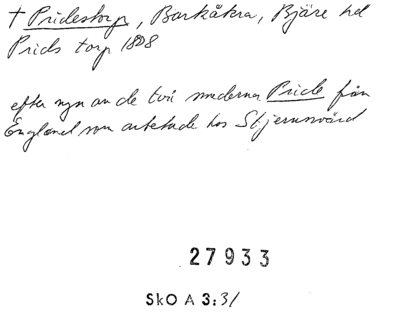 † Pridestorp, Barkåkra, Bjäre hd
Prids torp 1808
efter ngn av de två smederna Pride från
England som arbetade hos Stjernsvärd
27933
SkO A 3:31